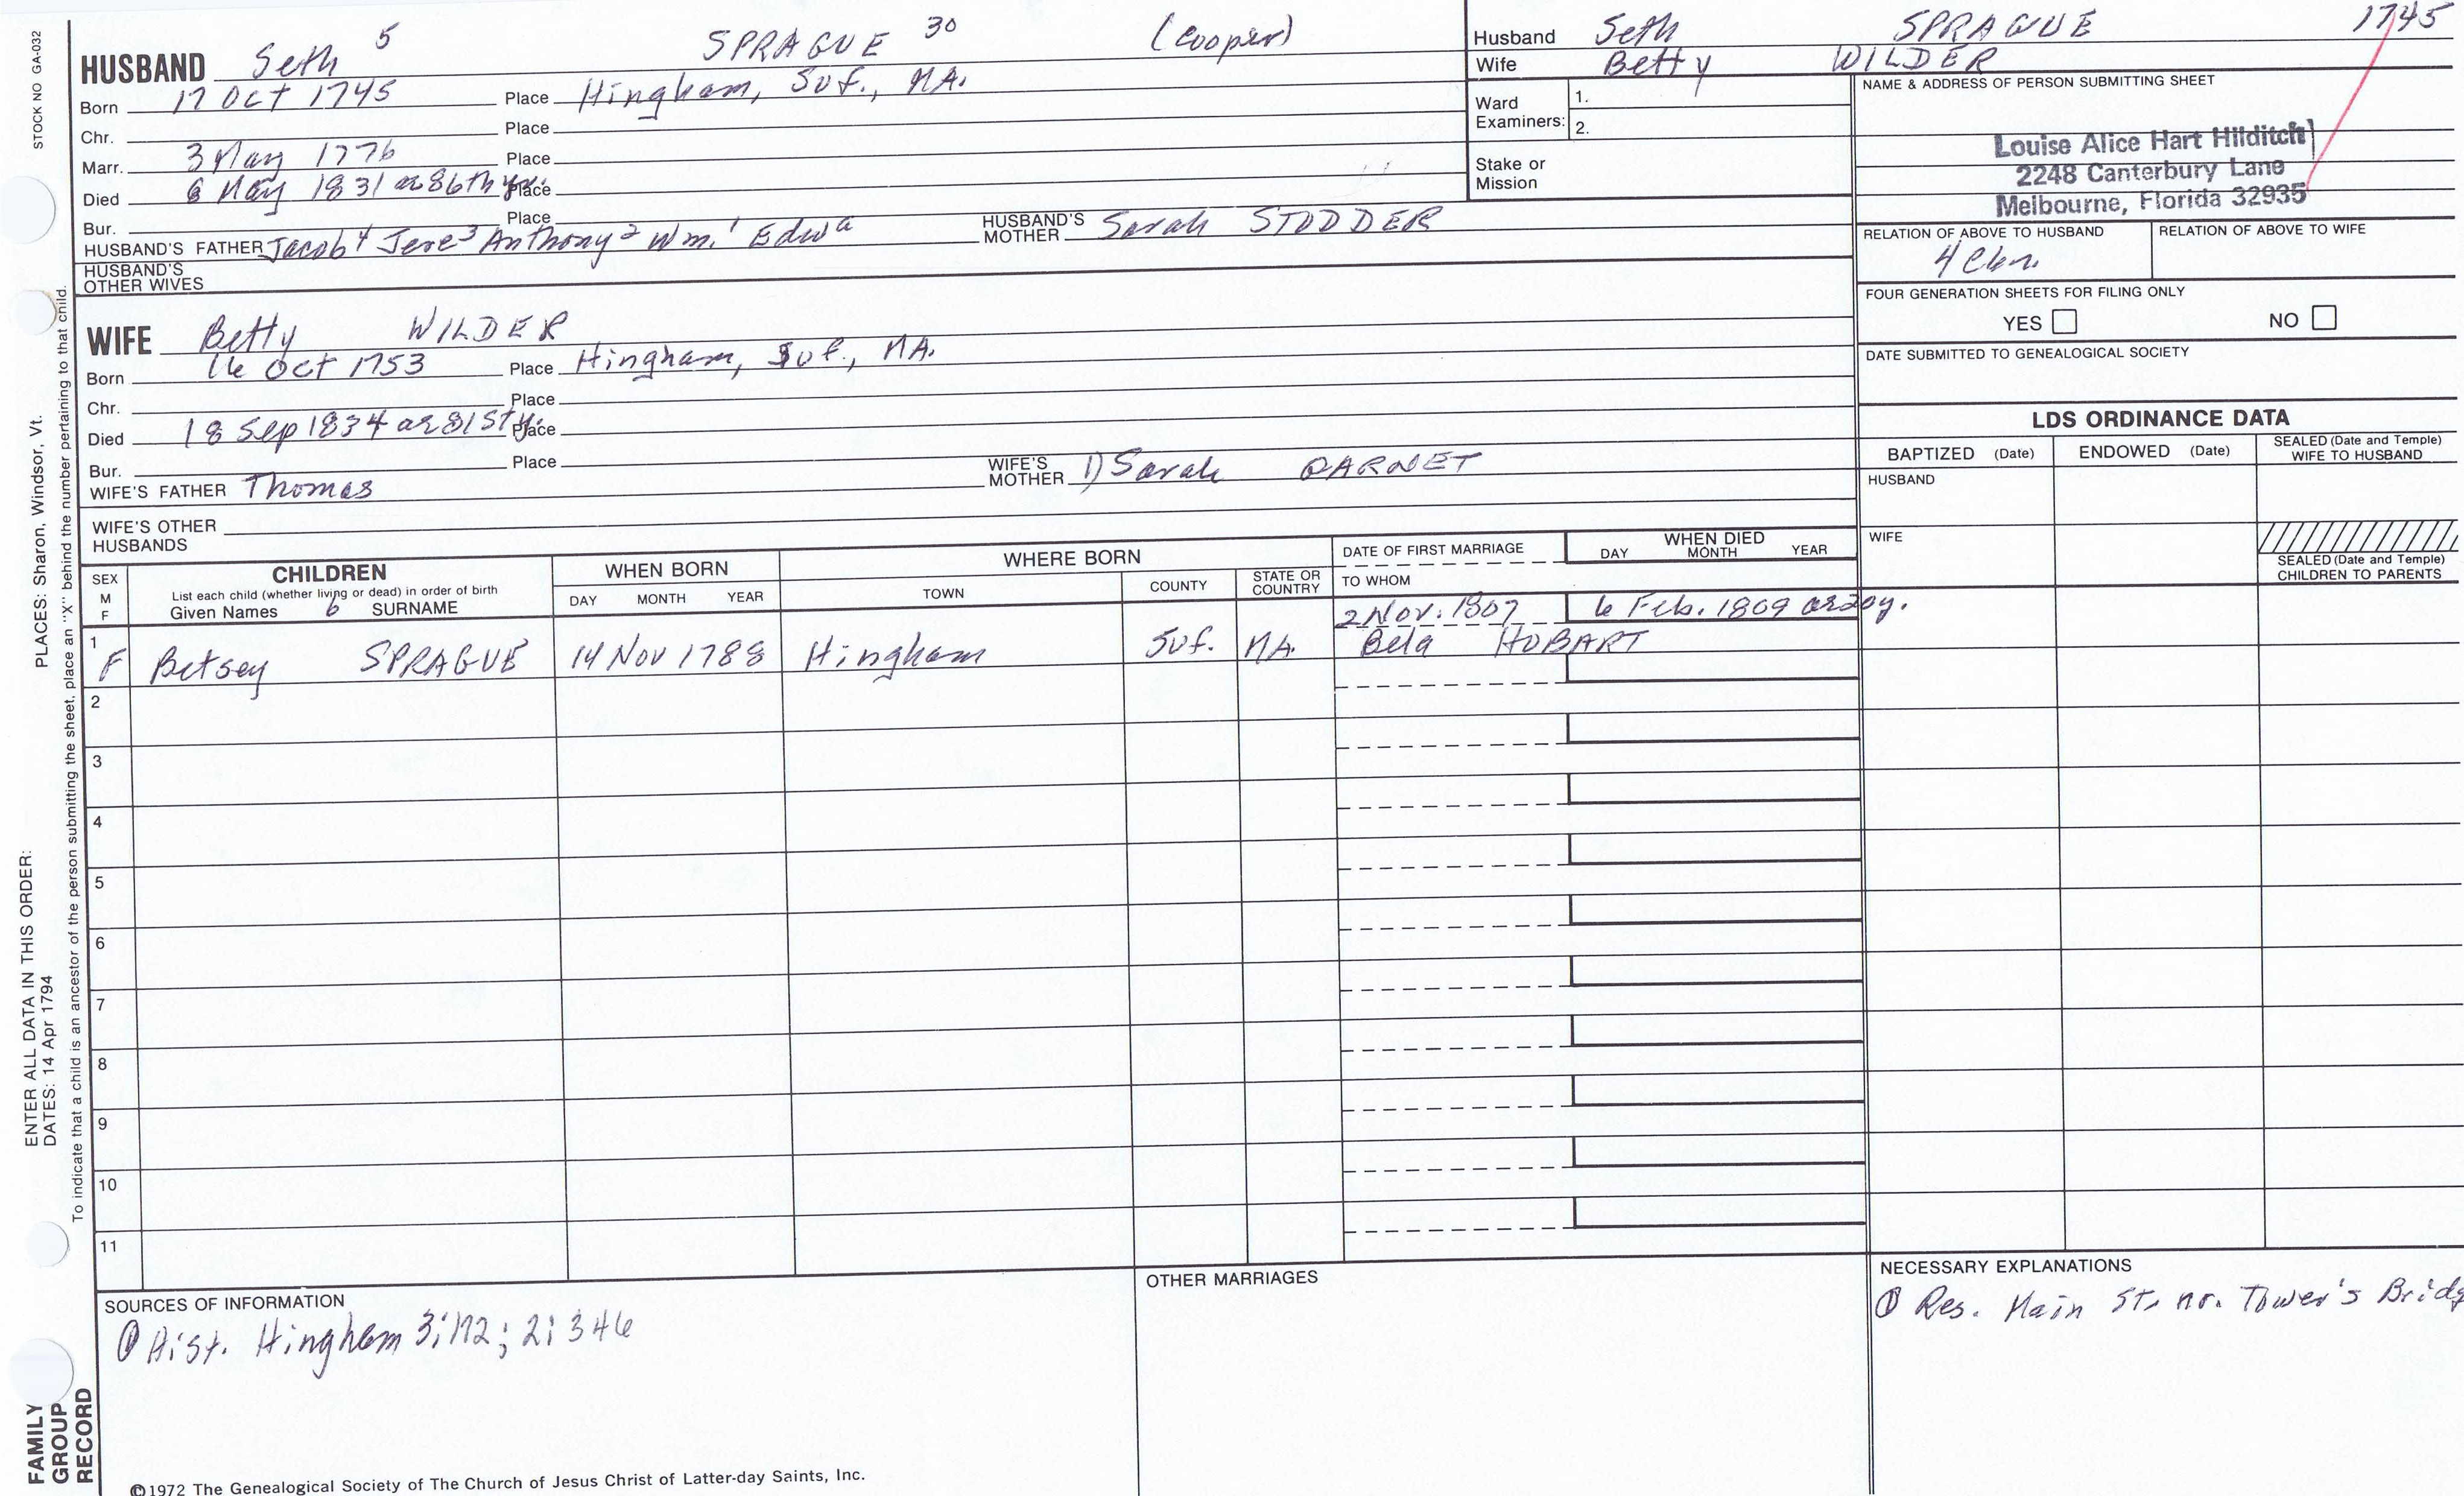 STOCK NO GA-032
PLACES: Sharon, Windsor, Vt.
ENTER ALL DATA IN THIS ORDER:
DATES: 14 Apr 1794
To indicate that a child is an ancestor of the person submitting the sheet, place an "X" behind the number pertaining to that child.
FAMILY GROUP RECORD
HUSBAND Seth 5 SPRAGUE 30 (Cooper)
Born 17 Oct 1745 Place Hingham, Suf., MA.
Chr. Place
Marr. 3 May 1776 Place
Died 6 May 1831 ae 86th yr. Place
Bur. Place
HUSBAND'S FATHER Jacob4 Jere3 Anthony2 Wm.1 Edwa HUSBAND'S MOTHER Sarah STODDER
HUSBAND'S OTHER WIVES
WIFE Betty WILDER
Born 16 Oct 1753 Place Hingham, Suf., MA.
Chr. Place
Died 18 Sep 1834 ae 81st y. Place
Bur. Place
WIFE'S FATHER Thomas WIFE'S MOTHER 1) Sarah
WIFE'S OTHER HUSBANDS
Husband Seth SPRAGUE 1745
Wife Betty WILDER
Ward Examiners: 1.
2.
Stake or Mission
NAME & ADDRESS OF PERSON SUBMITTING SHEET
Louise Alice Hart Hilditch
2248 Canterbury Lane
Melbourne, Florida 32935
RELATION OF ABOVE TO HUSBAND RELATION OF ABOVE TO WIFE
FOUR GENERATION SHEETS FOR FILING ONLY
YES NO
DATE SUBMITTED TO GENEALOGICAL SOCIETY
LDS ORDINANCE DATA
BAPTIZED (Date) ENDOWED (Date) SEALED (Date and Temple) WIFE TO HUSBAND
HUSBAND
WIFE
SEALED (Date and Temple) CHILDREN TO PARENTS
SEX M F
CHILDREN
List each child (whether living or dead) in order of birth
Given Names 6 SURNAME
WHEN BORN
DAY MONTH YEAR
WHERE BORN
TOWN COUNTY STATE OR COUNTRY
DATE OF FIRST MARRIAGE
TO WHOM
WHEN DIED
DAY MONTH YEAR
2 Nov. 1807 6 Feb. 1809 ae 20y.
1 F Betsey SPRAGUE 14 Nov 1788 Hingham Suf. MA. Bela HOBART
2
3
4
5
6
7
8
9
10
11
SOURCES OF INFORMATION
① Hist. Hingham 3:172; 2:346
OTHER MARRIAGES
NECESSARY EXPLANATIONS
① Res. Main St. nr. Tower's Bridg
©1972 The Genealogical Society of The Church of Jesus Christ of Latter-day Saints, Inc.